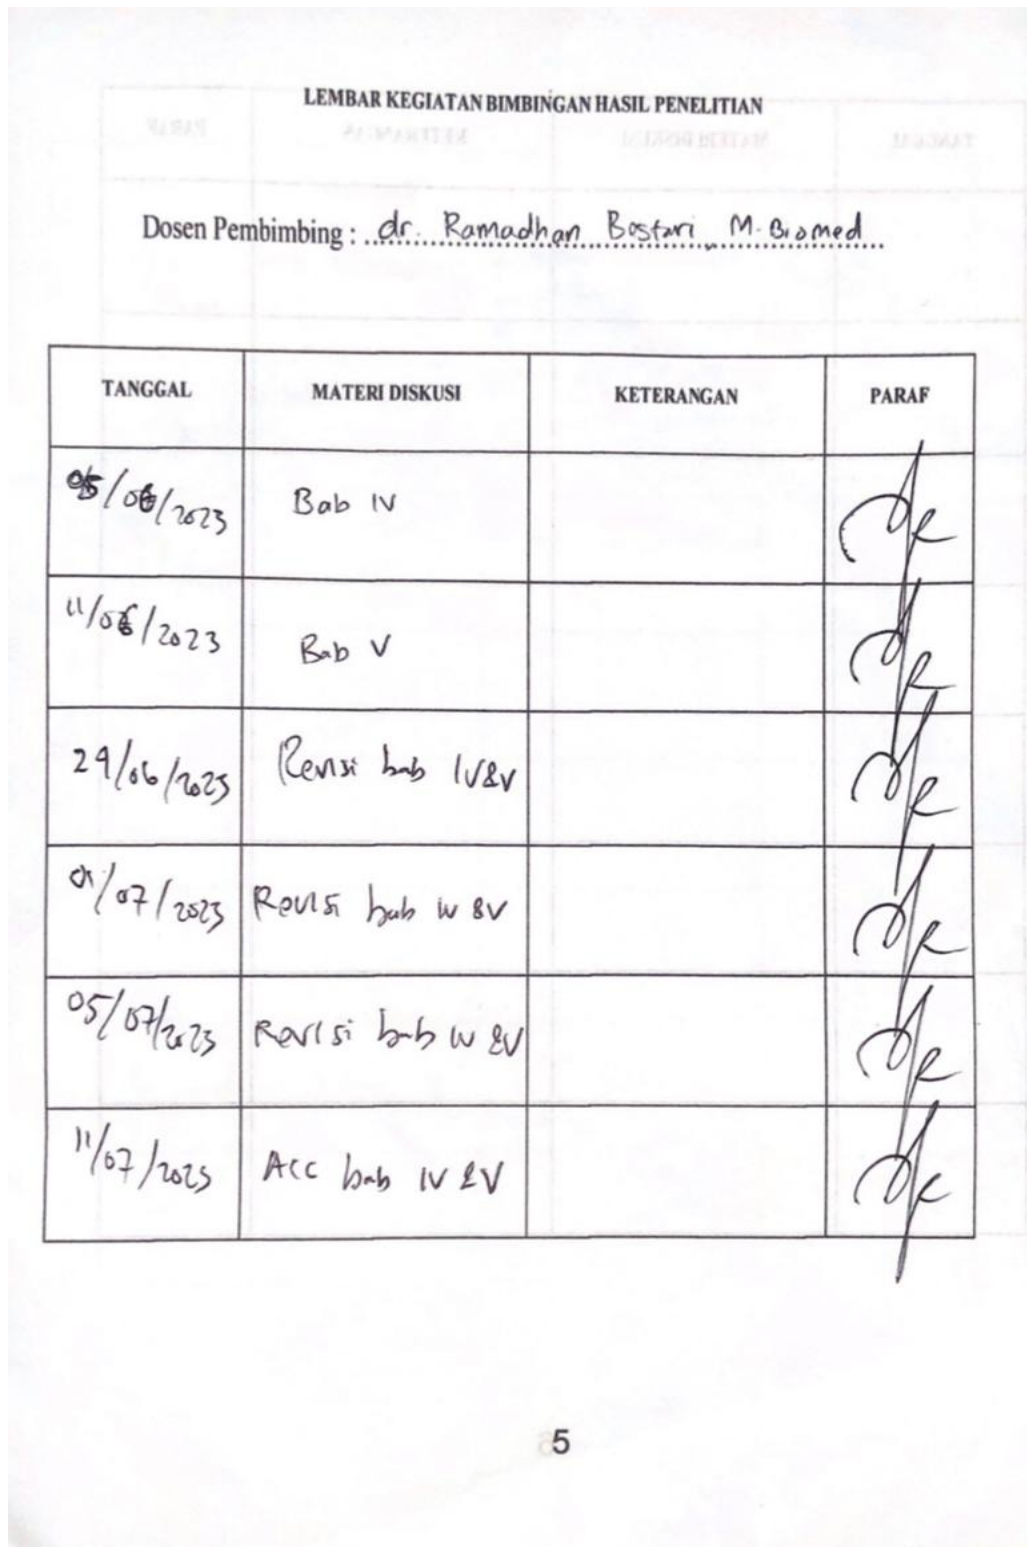 LEMBAR KEGIATAN BIMBINGAN HASIL PENELITIAN
Dosen Pembimbing : dr. Ramadhan Bestari, M. Biomed
TANGGAL MATERI DISKUSI KETERANGAN PARAF
05/06/2023 Bab IV
11/06/2023 Bab V
29/06/2023 Revisi bab IV&V
01/07/2023 Revisi bab IV &V
05/07/2023 Revisi bab IV &V
11/07/2023 Acc bab IV &V
5